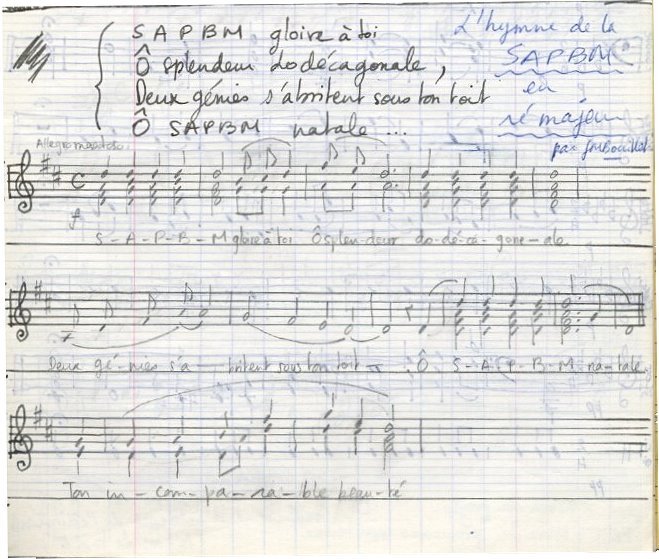 S A P B M gloire à toi
Ô splendeur dodécagonale,
Deux génies s'abritent sous ton toit
Ô SAPBM natale ...
L'hymne de la
SAPBM
en
ré majeur
par
Allegro
f
S-A-P-B-M gloire à toi Ô splen-deur do-dé-ca-gona-ale
Deux gé-nies s'a-britent sous ton toit Ô S-A-P-B-M na-tale
Ton in-com-pa-ra-ble beau-té